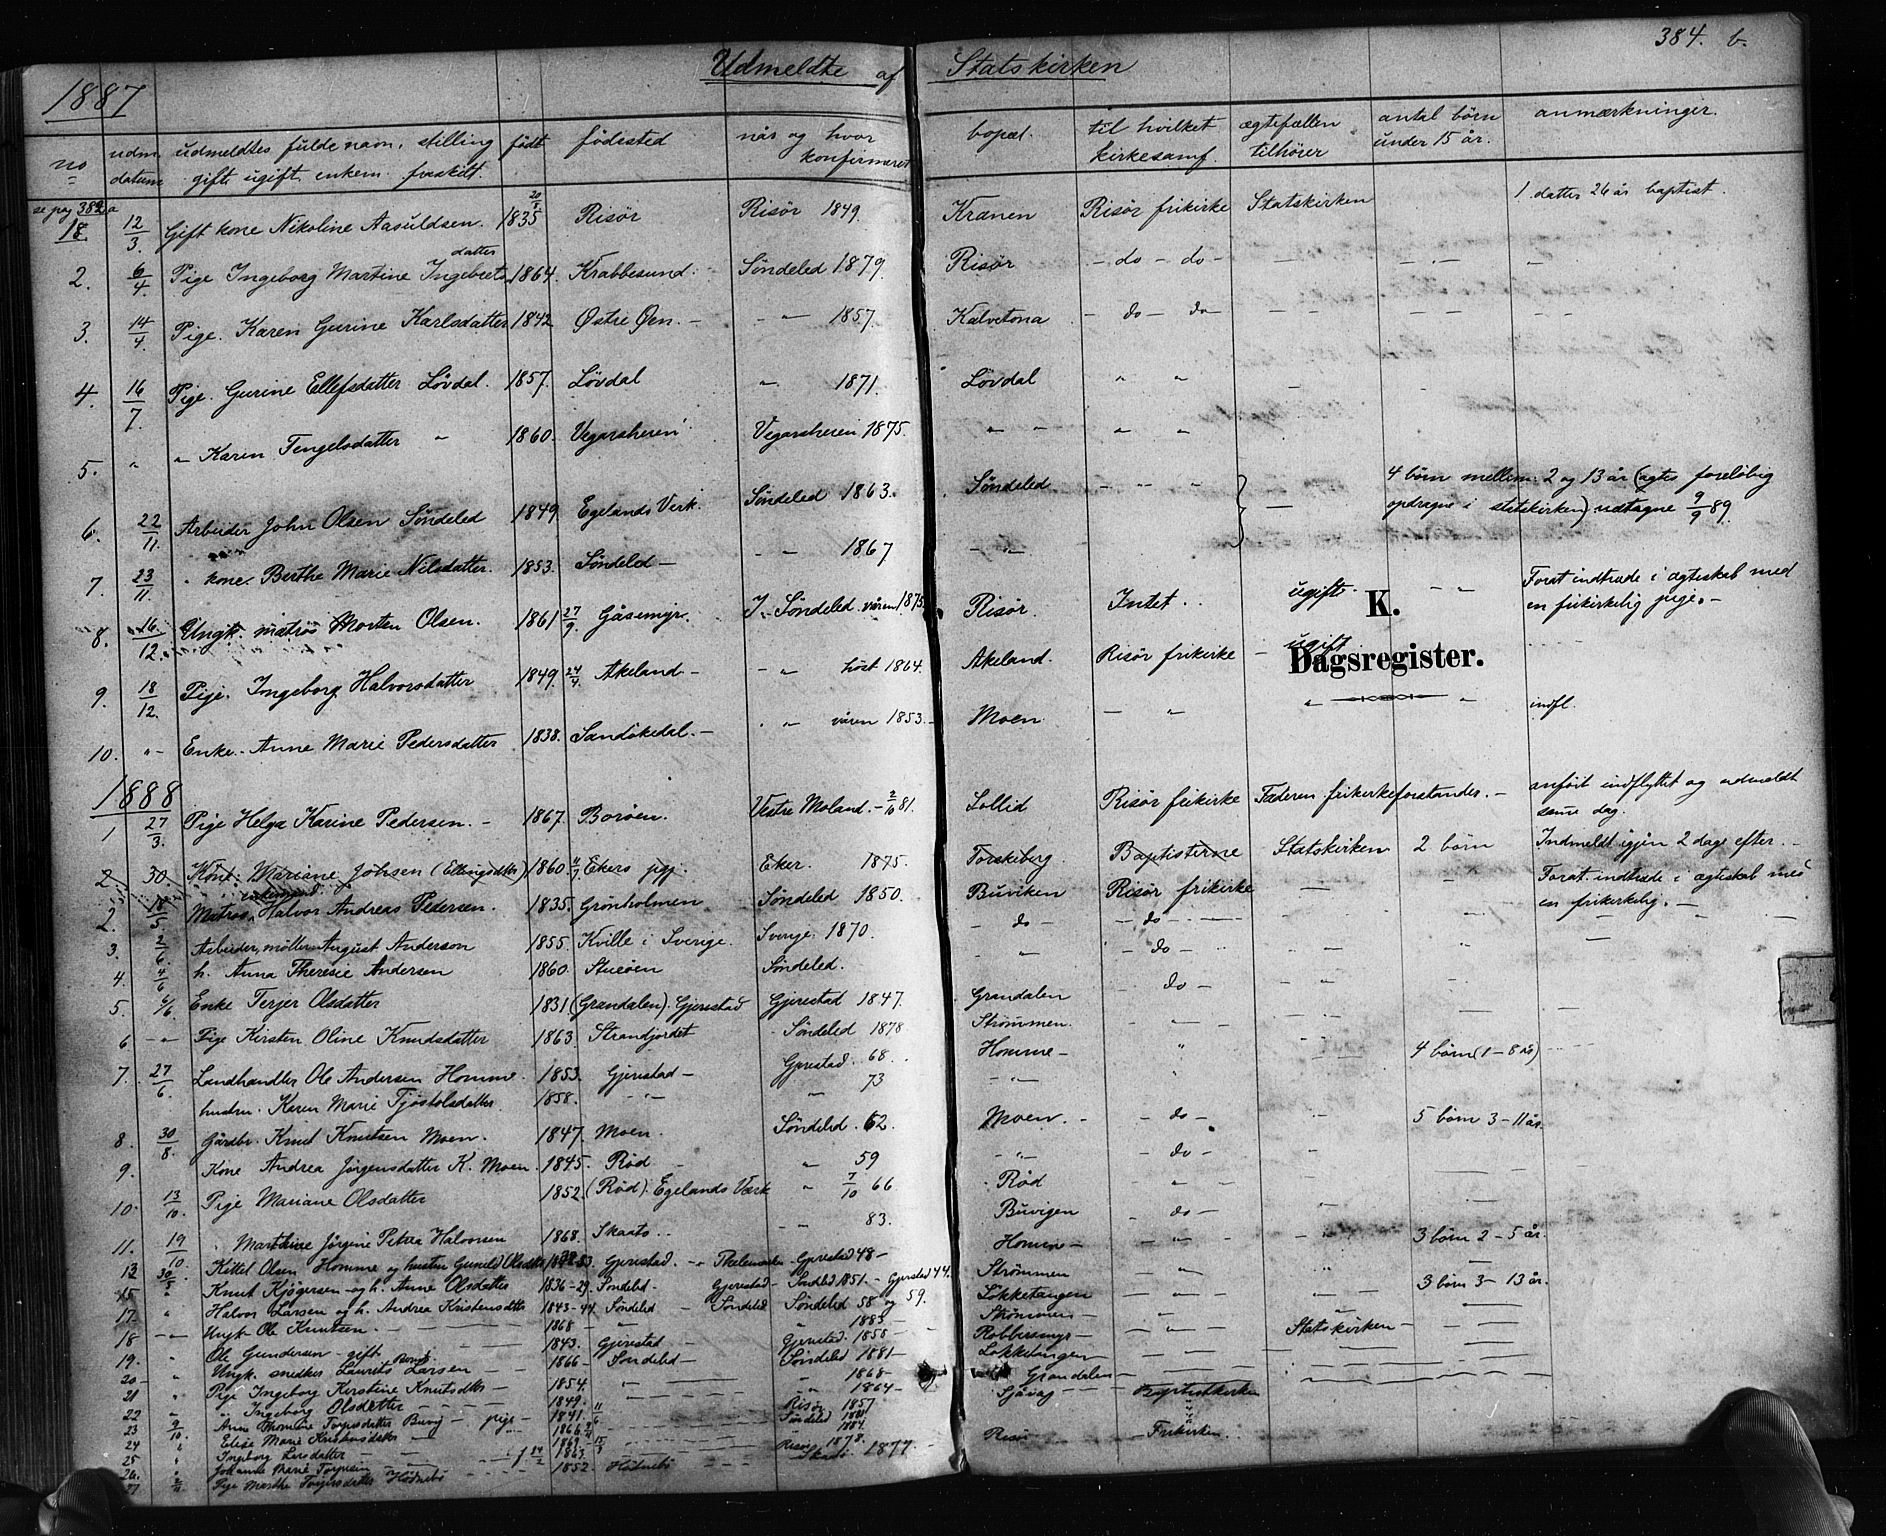 384. b.
1887 Udmeldte af Statskirken
no udm. datum udmeldtes fulde navn, stilling gift, ugift, enkem. fraskilt. født fødested når og hvor konfirmeret bopæl. til hvilket kirkesamf. ægtefællen tilhører antal børn under 15 år. anmærkninger.
se pag 382 a
18. 12/3. Gift kone Nikoline Aasuldsen. 1835 Risør Risør 1849. Kranen Risør frikirke Statskirken 1 datter 26 år baptist.
2. 6/4. Pige Ingeborg Martine Ingebretsdatter 1864. Krabbesund. Søndeled 1879. Risør - do - do -
3. 14/4. Pige. Karen Gurine Karlsdatter 1842 Østre Øen. - - " - 1857. Kalvetona - do - do
4. 16/7. Pige. Gurine Ellefsdatter Løvdal. 1857. Løvdal " 1871. Løvdal " "
5. " " Karen Tengelsdatter " 1860. Vegarsheien Vegarsheien 1875. " " " "
6. 22/11. Arbeider John Olsen Søndeled 1849 Egelands Verk. Søndeled 1863. Søndeled - " " - 4 børn mellem 2 og 13 år (agtes foreløbig opdragne i statskirken) udtagne 9/9 89.
7. 23/11. " kone. Berthe Marie Nilsdatter. 1853. Søndeled - - " 1867 - " -
8. 16/12. Ungk. matros Morten Olsen. 1861 27/9 Gåsemyr. I. Søndeled våren 1875. Risør. Intet. ugift. - " Forat indtræde i ægteskab med en frikirkelig pige. -
K.
Dagsregister.
9. 18/12. Pige. Ingeborg Halvorsdatter 1849. 24/4 Akeland - - " høst 1864. Akeland. Risør frikirke - ugift
10. " - Enke. Anne Marie Pedersdatter 1838. Sandøkedal. - " " våren 1853. - Moen. - " " " indfl.
1888
1 27/3. Pige Helga Karine Pedersen. - 1867. Borøen. Vestre Moland. - 2/10 81. Lollid Risør frikirke Faderen frikirkeforstander. - anført indflyttet og udmeldt samme dag.
2 30 Kone Mariane Johsen (Ellingsdtr) 1860. Ekers Eker. 1875. Torskeberg. Baptisterne Statskirken 2 børn Indmeldt igjen 2 dage efter. -
2. Matros Halvor Andreas Pedersen. 1835. Grønholmen Søndeled 1850. Buviken Risør frikirke - Forat indtræde i ægteskab med en frikirkelig. -
3. 2/6. Arbeider, møller August Anderson 1855. Kville i Sverige. Sverige 1870. do - - do -
4. 4/6 h. Anna Theresie Andersen 1860. Stueøen Søndeled. " do -
5. 6/6. Enke Terjer Olsdatter 1831 (Grandalen). Gjerestad Gjerestad 1847. Grandalen do -
6. - " - Pige Kirsten Oline Knudsdatter 1863. Strandjordet Søndeled 1878 Strømmen. - " -
7. 27/6. Landhandler Ole Andersen Homme. 1853. Gjerestad - Gjerestad. 68. Homme - " 4 børn (1 - 8 år)
hustru. Karen Marie Tjøstolsdatter. 1858. - " - - 73 - " -
8. 30/8. Gårdbr. Knut Knutsen Moen. 1847. Moen. Søndeled. 62. Moen. - - do - 5 børn 3 - 11 år.
9. Kone Andrea Jørgensdatter K. Moen. 1845. Rød " 59 - " - - do -
10. 13/10. Pige Mariane Olsdatter 1852. (Rød). Egelands Værk " 7/10 66 Rød - " -
11. 19/10 " Marthine Jørgine Petrea Halvorsen 1868. Skaats.. - " 83. Buvigen - do -
13 30/ Kittel Olsen Homme og hustru Gunild Olsdtr Gjerestad. - Thelemarken Gjerestad 48 - Homme - - " 3 børn 2 - 5 år.
15 " Knut Kjøgersen og h. Anne Olsdatter 1836 - 29. Søndeled. Gjerestad - Søndeled 1851. - Gjerstad 44. Strømmen "
17. " Halvor Larsen og h. Andrea Kristensdtr 1843 - 44. Søndeled - Søndeled Søndeled 58 og 59. Løkketangen - " 3 børn 3 - 13 år.
18 - " - Ungk. Ole Knutsen. 1868 - " " 1883 - Strømmen -
19. " Ole Gundersen - gift 1843. Gjerestad - Gjerestad. 1858 - Robbersmyr - - " Statskirken -
20 - " Ungk. snedker Laurits Larsen - 1866 - Søndeled - Søndeled 1881 - Løkketangen -
21 " Pige Ingeborg Kirstine Knutsdtr - 1854. " 1868 - Grandalen -
22 " " Ingeborg Olsdatter 1849. " 1864 - Sjåvåg - Baptistkirken
23 9/10. Anne Thomine Terjesdatter Buvig - pige 1841. Risør 1857
24 " Elise Marie Kristiansdatter 1866 Søndeled
25 " Ingeborg Larsdatter 1863. Risør 1878. Risør Frikirken.
26. " Johanne Marie Torjesen 1877. -
27 Pige Marthe Torjersdatter Hødnebø 1852. Hødnebø